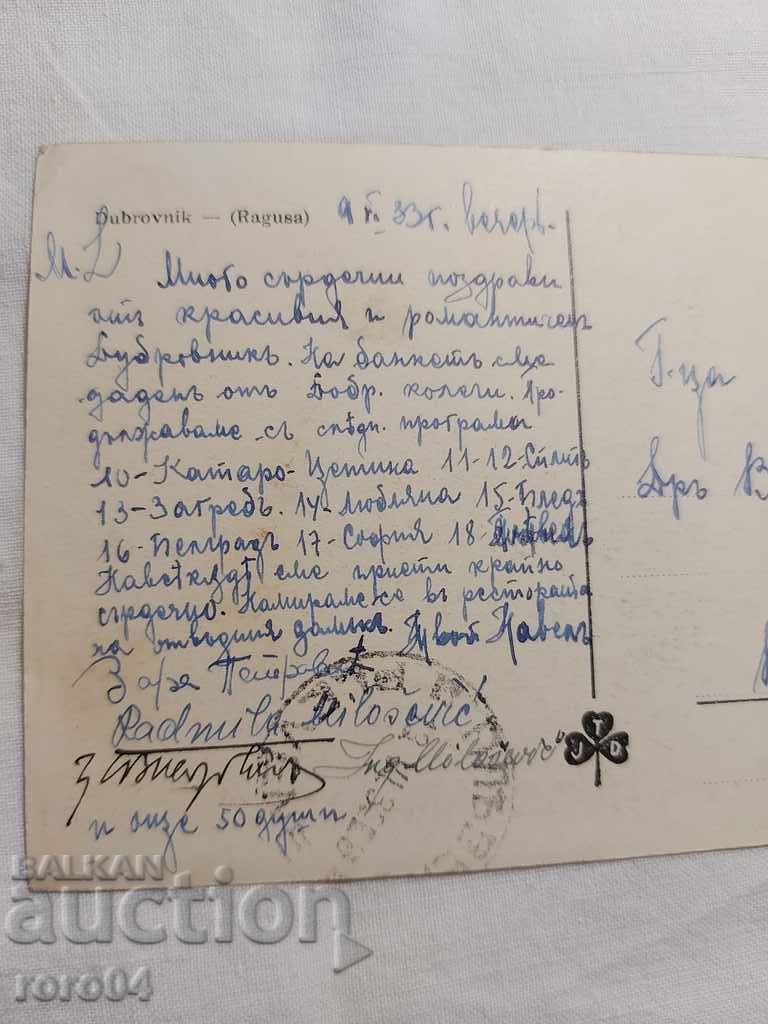 Dubrovnik — (Ragusa)
9 V. 33 г. вечерь.
М. Л
Много сърдечни поздрави
отъ красивия и романтиченъ
Дубровникъ. На банкетъ сме
даденъ отъ Добр. колеги. Про-
дължаваме съ следн. програма
10 - Катаро - Цетина 11-12 - Сплитъ
13 - Загребъ. 14 - Любляна 15 - Бледъ
16 - Белградъ 17 - София 18 -
Навсѣкѫдѣ сме приети крайно
сърдечно. Намираме се въ ресторанта
на
Твой Павелъ
Заре Петровић
Radmila Milošević
Ing Milošević
и още 50 души
Г-ца
Дръ В
J T D
BALKAN
auction
roro04